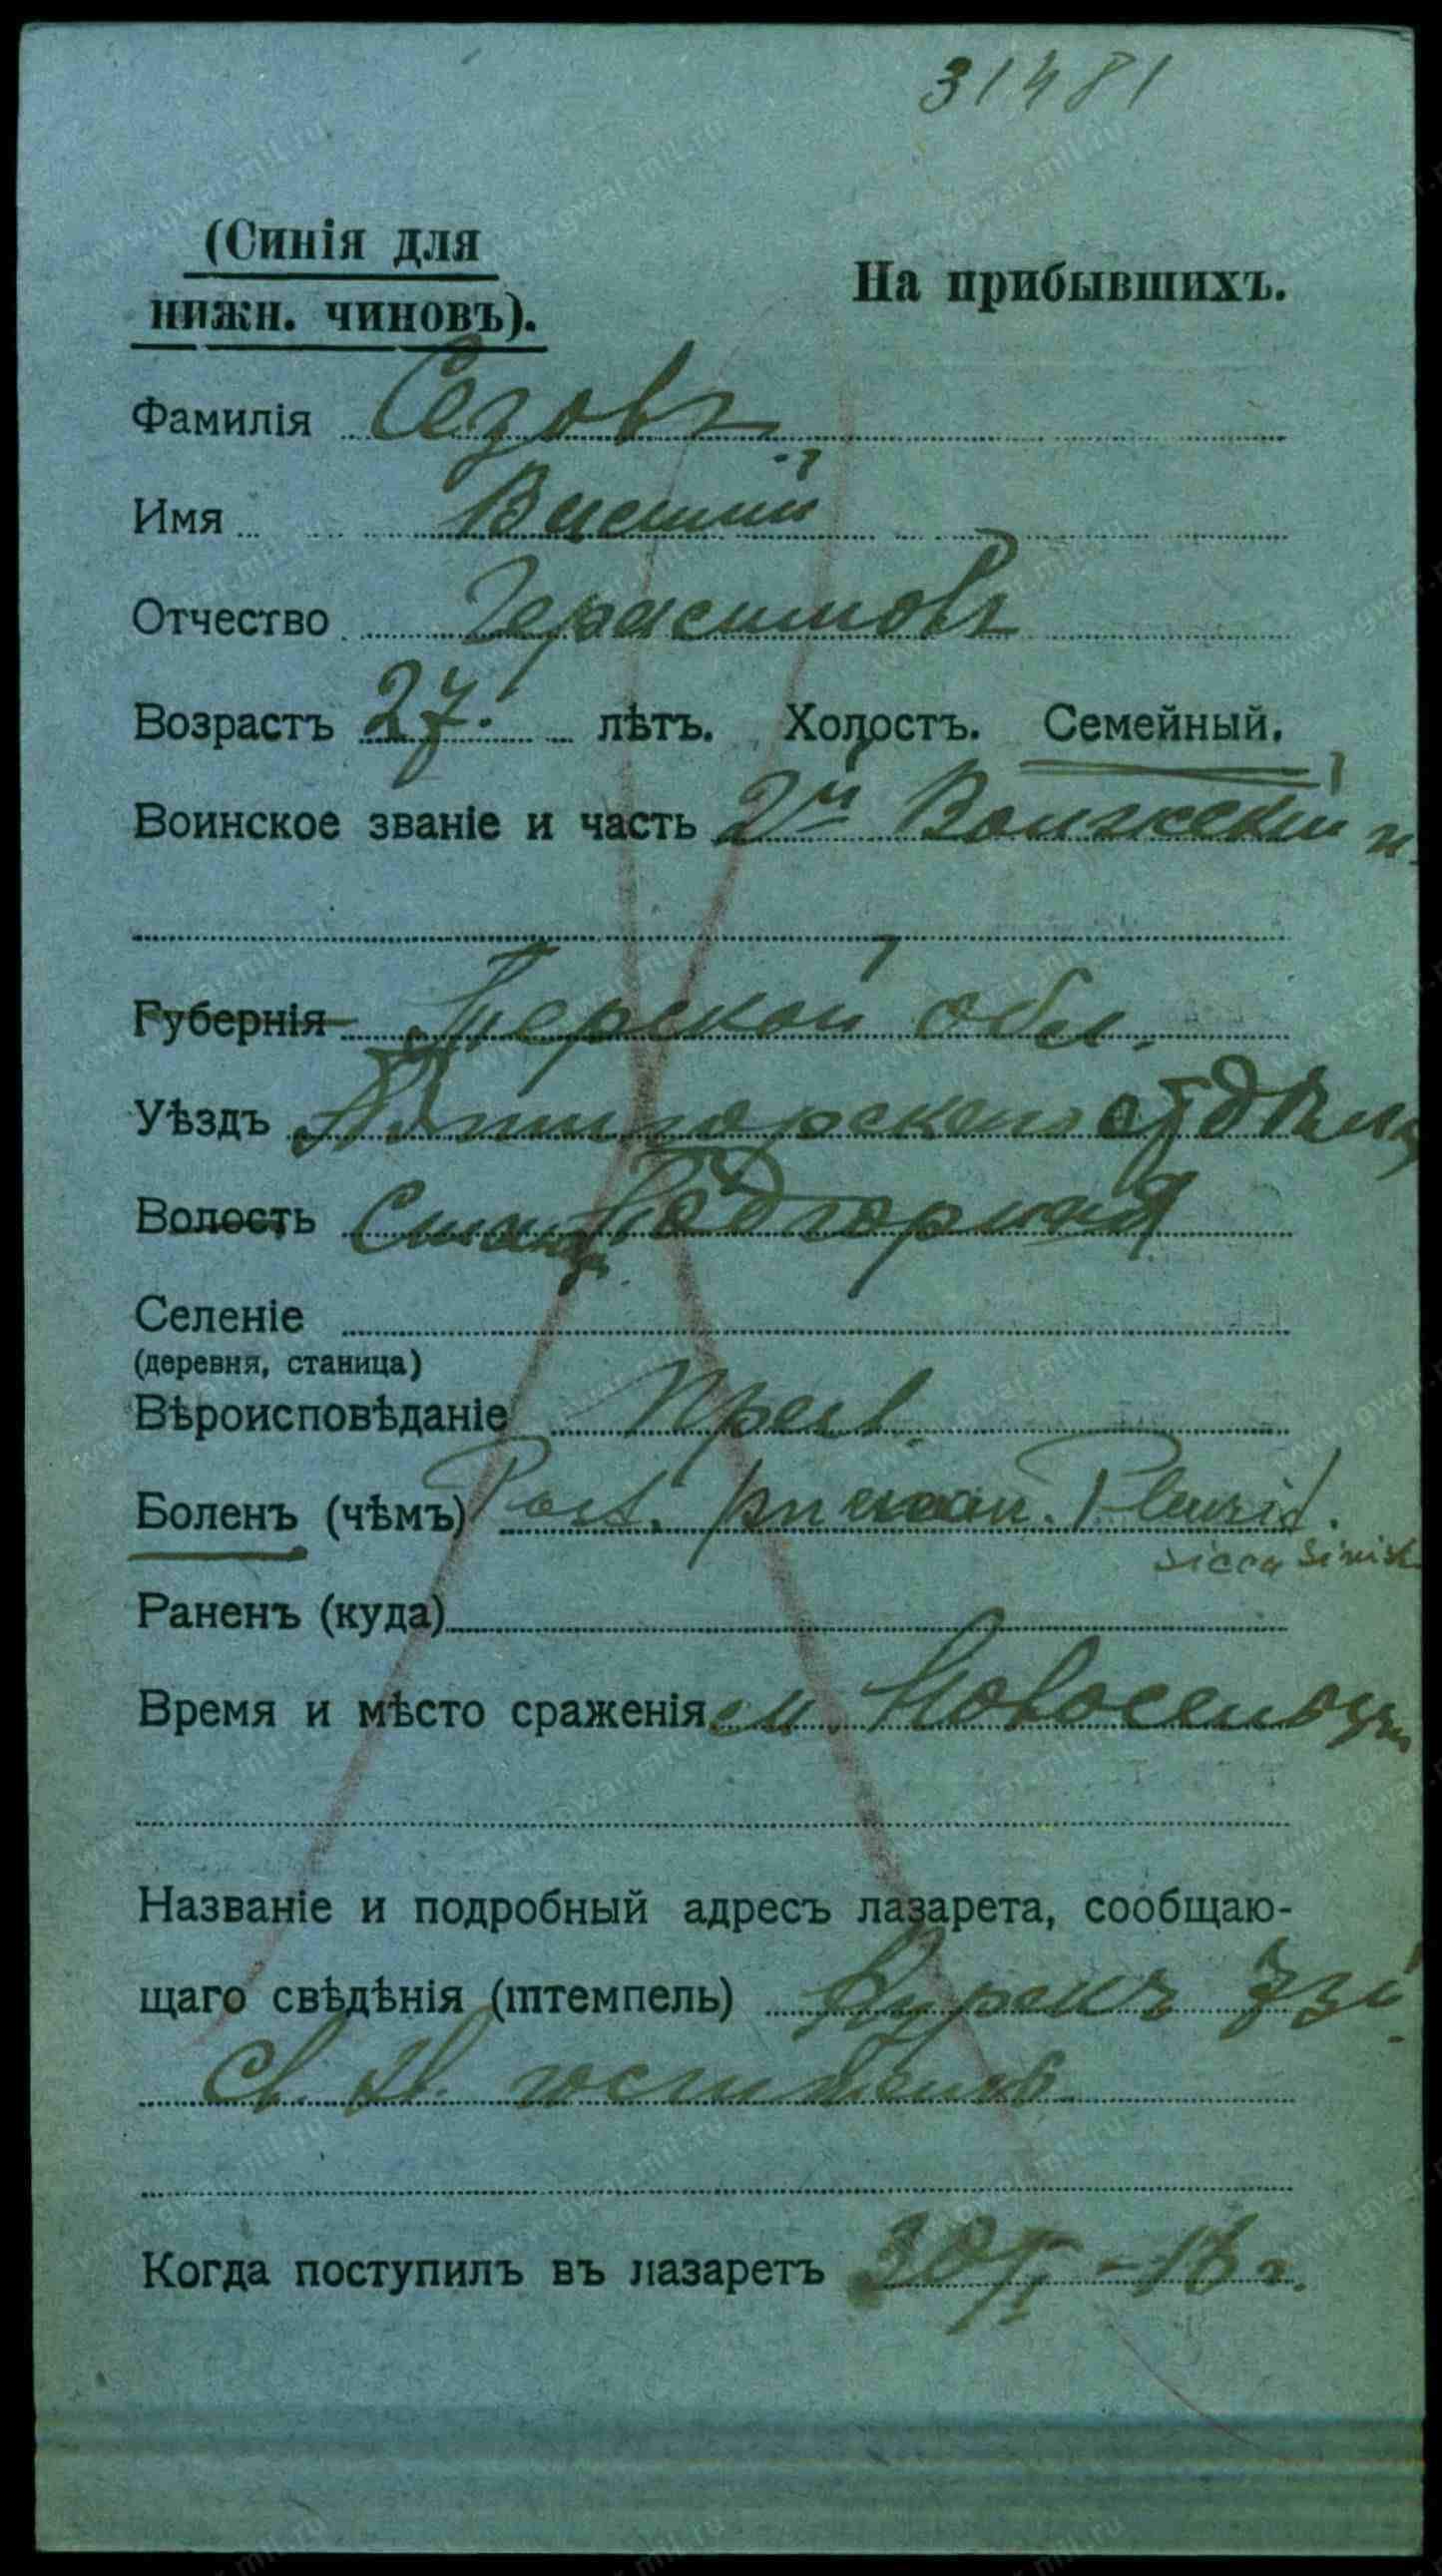 31481
(Синія для
нижн. чиновъ).
На прибывшихъ.
Фамилія Сезовъ
Имя
Отчество Герасимовъ
Возрастъ 27. лѣтъ. Холостъ. Семейный.
Воинское званіе и часть 2й Волжскій п.
Губернія Терской обл.
Уѣздъ Пятигорскаго отдѣла
Волость Станица Подгорная
Селеніе
(деревня, станица)
Вѣроисповѣданіе Прав.
Боленъ (чѣмъ) Post. pneumon. Pleurit.
sicca sinist.
Раненъ (куда)
Время и мѣсто сраженія м. Новоселица
Названіе и подробный адресъ лазарета, сообщаю-
щаго свѣдѣнія (штемпель)
Когда поступилъ въ лазаретъ